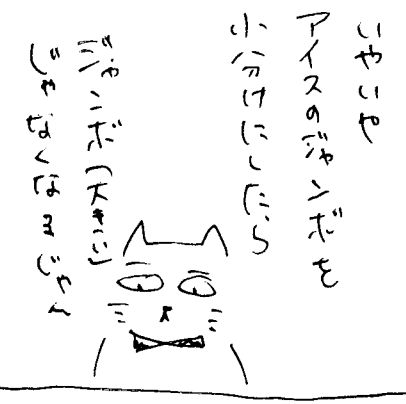 いやいや
アイスのジャンボを
小分けにしたら
ジャンボ「大きい」
じゃなくなるじゃん